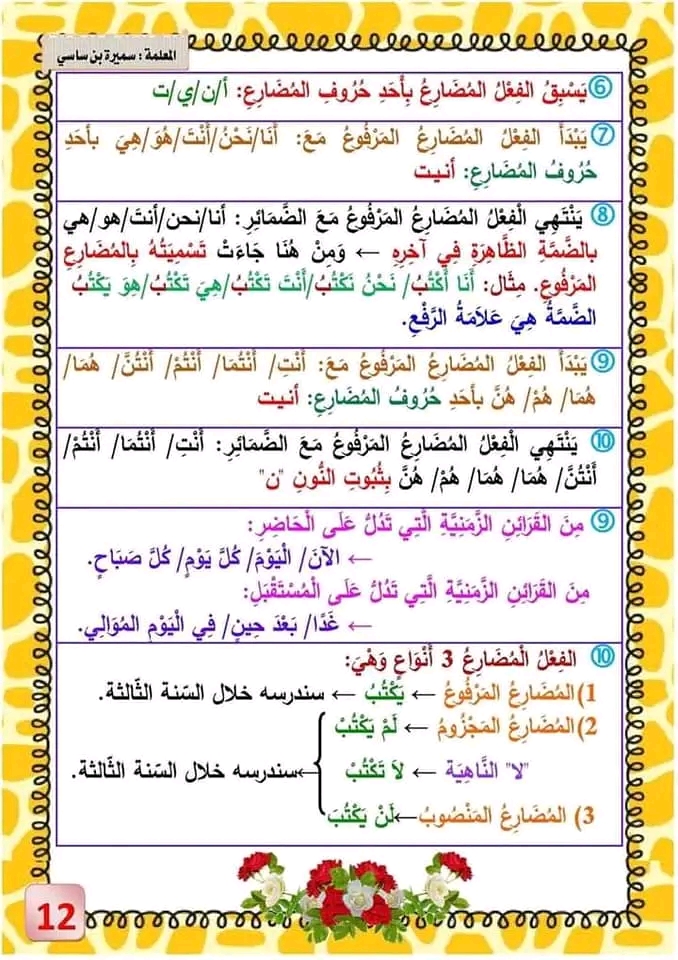 المعلمة : سميرة بن ساسي
⑥ يَسْبِقُ الفِعْلُ المُضَارِعُ بِأَحَدِ حُرُوفِ المُضَارِعِ: أ/ن/ي/ت
⑦ يَبْدَأُ الفِعْلُ المُضَارِعُ المَرْفُوعُ مَعَ: أَنَا/نَحْنُ/أَنْتَ/هُوَ/هِيَ بأحَدِ
حُرُوفُ المُضَارِعِ: أنـيت
⑧ يَنْتَهِي الْفِعْلُ المُضَارِعُ المَرْفُوعُ مَعَ الضَّمَائِرِ: أنا/نحن/أنتَ/هو/هي
بالضَّمَّةِ الظَّاهِرَةِ فِي آخِرِهِ ← وَمِنْ هُنَا جَاءَتْ تَسْمِيَتُهُ بِالمُضَارِعِ
المَرْفُوعِ. مِثَال: أَنَا أَكْتُبُ/ نَحْنُ نَكْتُبُ/أَنْتَ تَكْتُبُ/هِيَ تَكْتُبُ/هِوَ يَكْتُبُ
الضَّمَّةُ هِيَ عَلاَمَةُ الرَّفْعِ.
⑨ يَبْدَأُ الفِعْلُ المُضَارِعُ المَرْفُوعُ مَعَ: أَنْتِ/ أَنْتُمَا/ أَنْتُمْ/ أَنْتُنَّ/ هُمَا/
هُمَا/ هُمْ/ هُنَّ بِأَحَدِ حُرُوفُ المُضَارِعِ: أنـيت
⑩ يَنْتَهِي الْفِعْلُ المُضَارِعُ المَرْفُوعُ مَعَ الضَّمَائِرِ: أَنْتِ/ أَنْتُمَا/ أَنْتُمْ/
أَنْتُنَّ/ هُمَا/ هُمَا/ هُمْ/ هُنَّ بِثُبُوتِ النُّونِ "ن"
⑨ مِنَ القَرَائِنِ الزَّمَنِيَّةِ الَّتِي تَدُلُّ عَلَى الْحَاضِرِ:
← الآنَ/ الْيَوْمَ/ كُلَّ يَوْمٍ/ كُلَّ صَبَاحٍ.
مِنَ القَرَائِنِ الزَّمَنِيَّةِ الَّتِي تَدُلُّ عَلَى الْمُسْتَقْبَلِ:
← غَدًا/ بَعْدَ حِينٍ/ فِي الْيَوْمِ المُوَالِي.
⑩ الفِعْلُ الْمُضَارِعُ 3 أَنْوَاعٍ وَهْيَ:
1) المُضَارِعُ المَرْفُوعُ ← يَكْتُبُ ← سندرسه خلال السّنة الثّالثة.
2) المُضَارِعُ المَجْزُومُ ← لَمْ يَكْتُبْ
"لا" النَّاهِيَة ← لاَ تَكْتُبْ ←سندرسه خلال السّنة الثّالثة.
3) المُضَارِعُ المَنْصُوبُ←لَنْ يَكْتُبَ
12